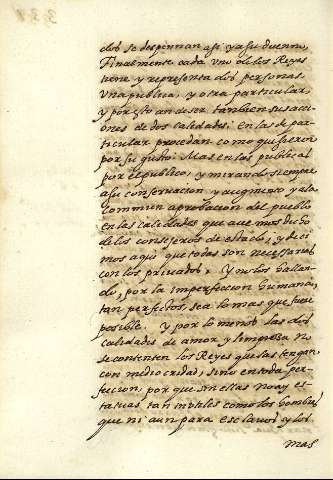 dos se despennan asi y a su duenno,
Finalmente cada uno de los Reyes
tiene y representa dos personas
Una publica, y otra particular,
y por esto an de ser tambien sus acci
ones de dos calidades: En las de par-
ticular procedan como quisieren
por su gusto: Mas en las publicas
por el publico, y mirando siempre
a su conservacion, y augmento y a la
commun aprovacion del pueblo
en las calidades que avemos dicho
de los consejeros de estado, y deci
mos aqui que todas son necessarias
con los privados, Y no los hallan-
do, por la imperfeccion humana,
tan perfectos, sea lo mas que fuere
posible. Y por lo menos las dos
calidades de amor, y limpieza no
se contenten los Reyes que las tengan
con mediocridad, sino en toda per-
feccion, por que sin ellas no ay es-
tatuas tan inutiles como los hombres
que ni aun para esclavos y los
mas